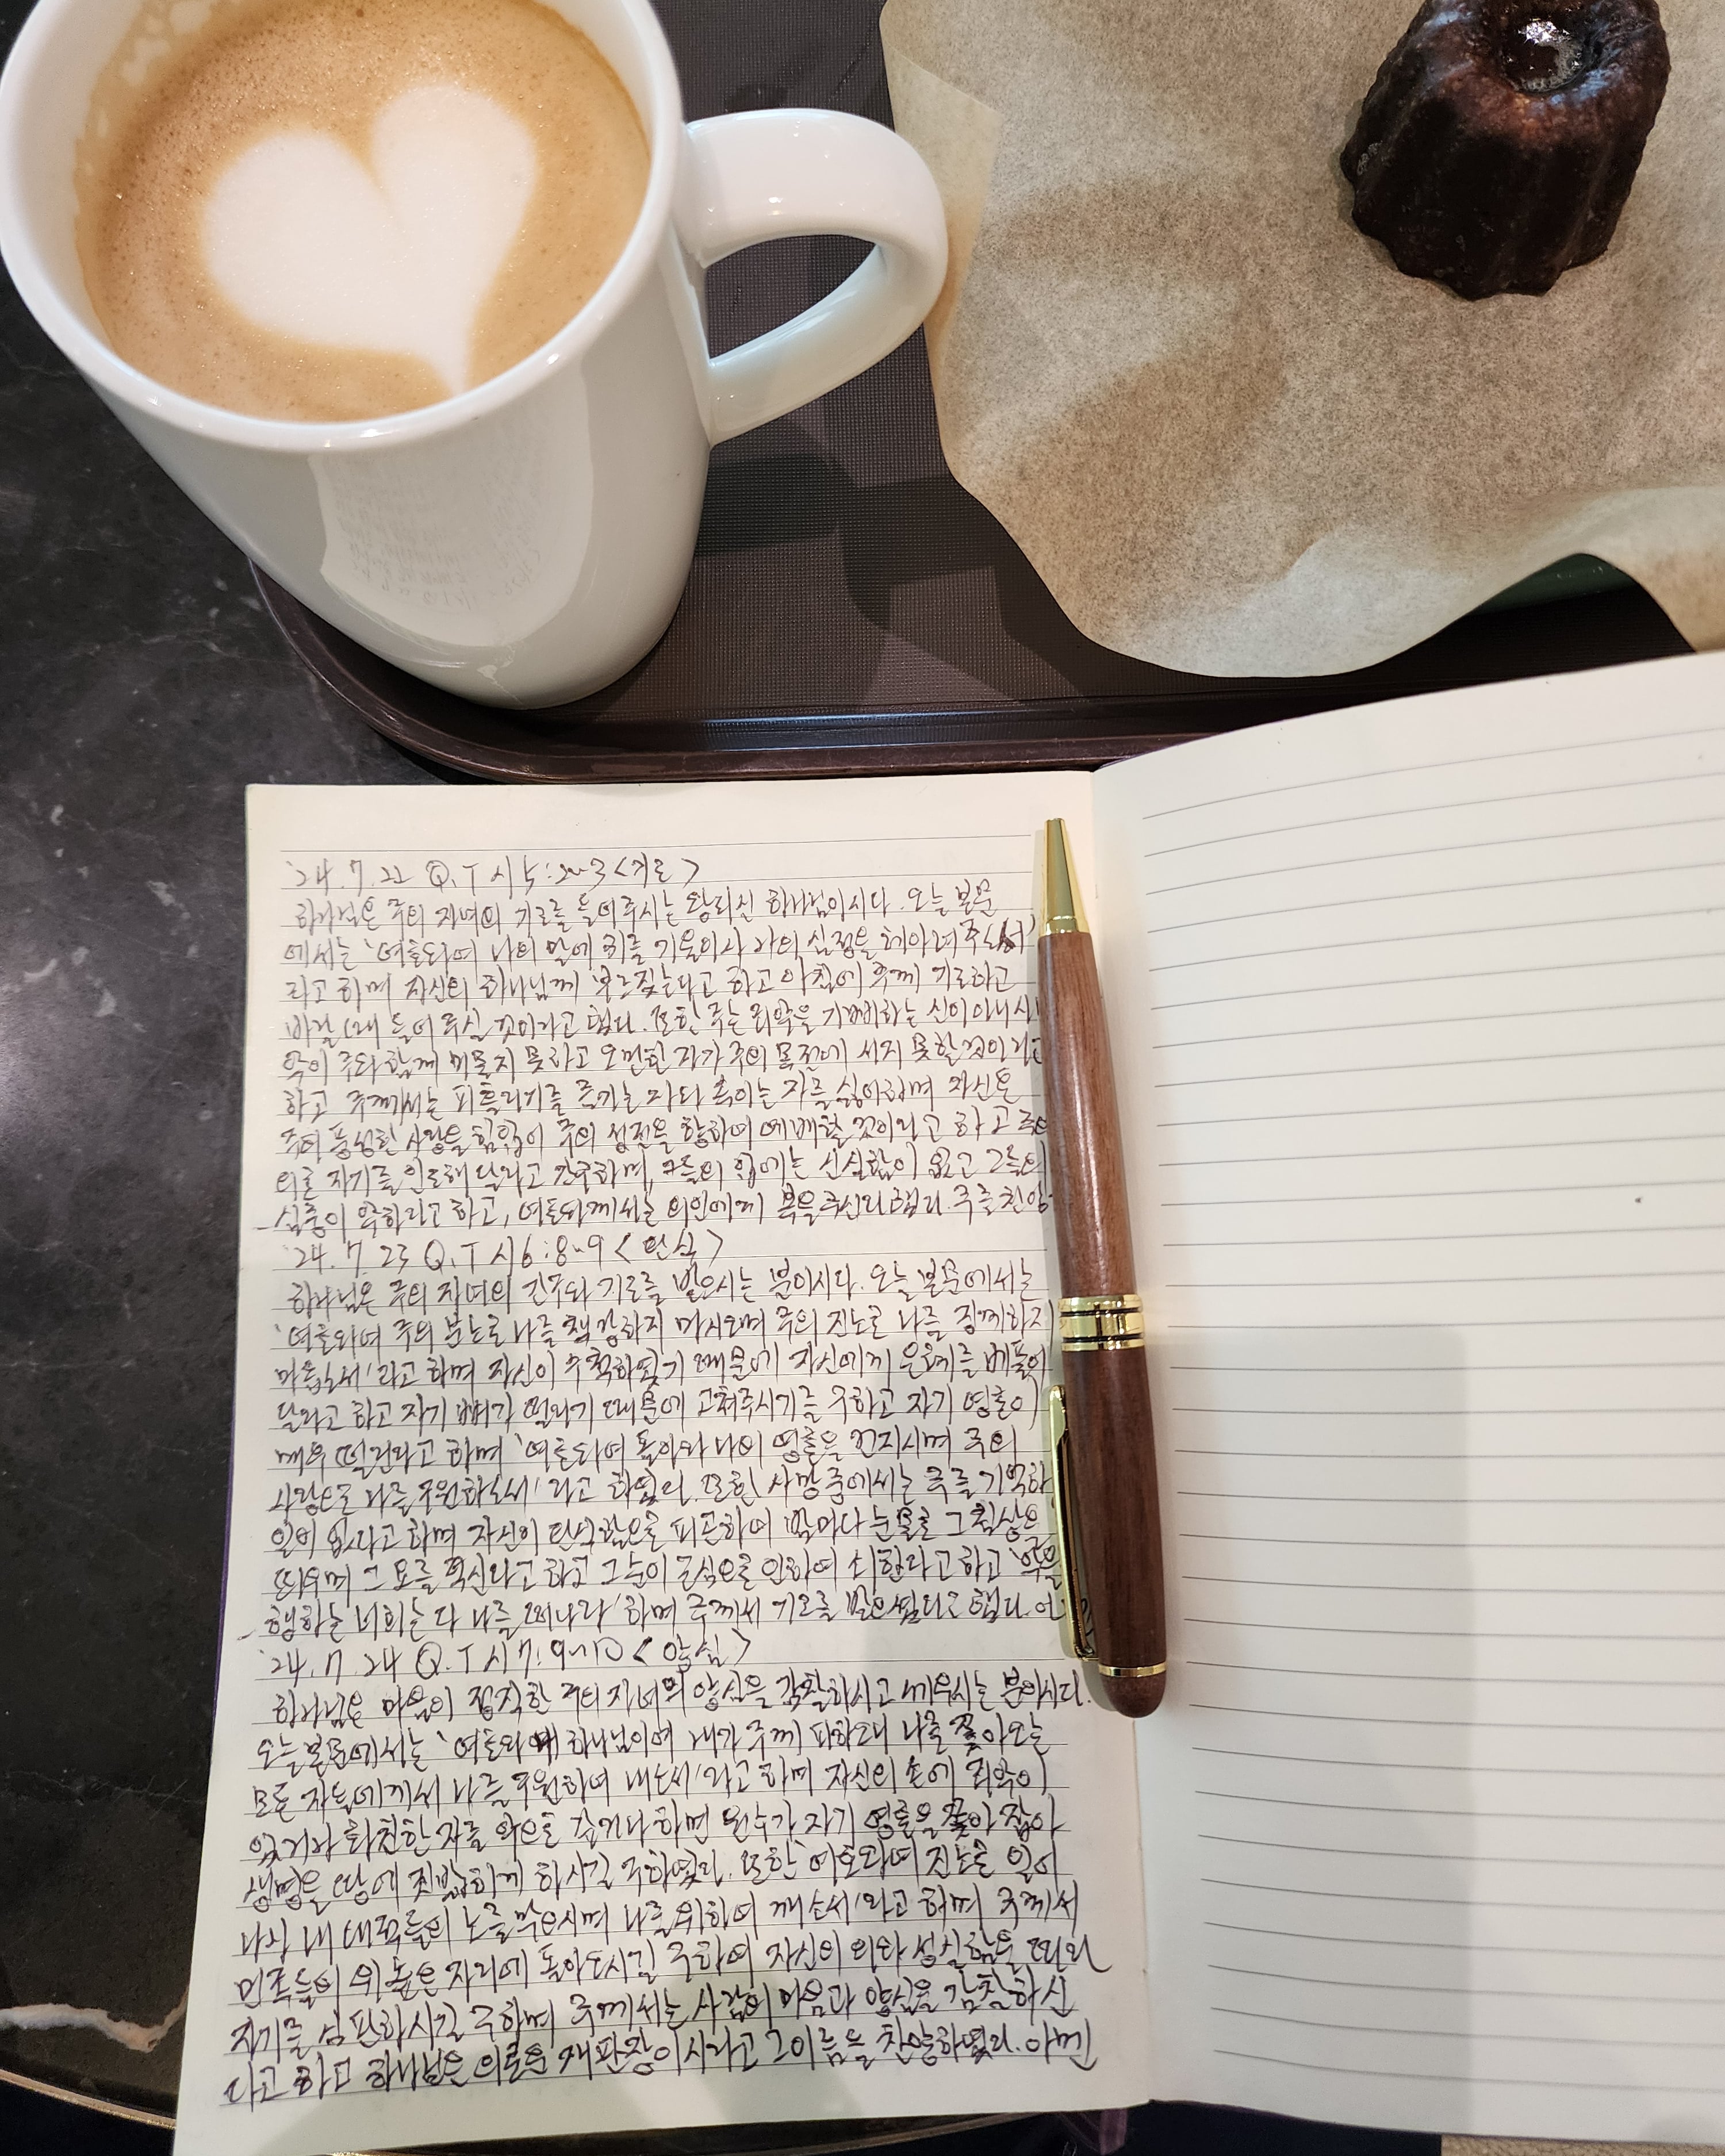 '24.7.22 Q.T 시5:2~3 <기도>
하나님은 주의 자녀의 기도를 들어주시는 왕되신 하나님이시다. 오늘 본문
에서는 '여호와여 나의 말에 귀를 기울이사 나의 심정을 헤아려주소서'
라고 하며 자신의 하나님께 부르짖는다고 하고 아침에 주께 기도하고
바랄 때 들어 주실 것이라고 했다. 또한 주는 죄악을 기뻐하는 신이 아니시니
악이 주와 함께 머물지 못하고 오만한 자가 주의 목전에 서지 못할 것이라고
하고 주께서는 피흘리기를 즐기는 자와 속이는 자를 싫어하며 자신은
주의 풍성한 사랑을 힘입어 주의 성전을 향하여 예배할 것이라고 하고 주의
의로 자기를 인도해 달라고 간구하며, 그들의 입에는 신실함이 없고 그들의
심중이 악하다고 하고, 여호와께서는 의인에게 복을 주신다 했다. 주를 찬양
'24.7.23 Q.T 시6:8~9 <탄식>
하나님은 주의 자녀의 간구와 기도를 받으시는 분이시다. 오늘 본문에서는
'여호와여 주의 분노로 나를 책망하지 마시오며 주의 진노로 나를 징계하지
마옵소서'라고 하며 자신이 수척하였기 때문에 자신에게 은혜를 베풀어
달라고 하고 자기 뼈가 떨리기 때문에 고쳐주시기를 구하고 자기 영혼이
매우 떨린다고 하며 '여호와여 돌아와 나의 영혼을 건지시며 주의
사랑으로 나를 구원하소서'라고 하였다. 또한 사망 중에서는 주를 기억하
일이 없다고 하며 자신이 탄식함으로 피곤하여 밤마다 눈물로 그 침상을
띄우며 그 요를 적신다고 하고 그 눈이 근심으로 인하여 쇠한다고 하고 '악을
행하는 너희는 다 나를 떠나라' 하며 주께서 기도를 받으셨다고 했다.
'24.7.24 Q.T 시7:9~10 <양심>
하나님은 마음이 정직한 주의 자녀의 양심을 감찰하시고 깨우시는 분이시다.
오늘 본문에서는 '여호와 내 하나님이여 내가 주께 피하오니 나를 쫓아오는
모든 자들에게서 나를 구원하여 내소서'라고 하며 자신의 손에 죄악이
있거나 화친한 자를 악으로 갚거나 하면 원수가 자기 영혼을 쫓아 잡아
생명을 땅에 짓밟히게 하시길 구하였다. 또한 '여호와여 진노로 일어
나사 내 대적들의 노를 막으시며 나를 위하여 깨소서'라고 하며 주께서
민족들의 위 높은 자리에 돌아오시길 구하여 자신의 의와 성실함을 따라
자기를 심판하시길 구하며 주께서는 사람의 마음과 양심을 감찰하신
다고 하고 하나님은 의로운 재판장이시라고 그 이름을 찬양하였다. 아멘